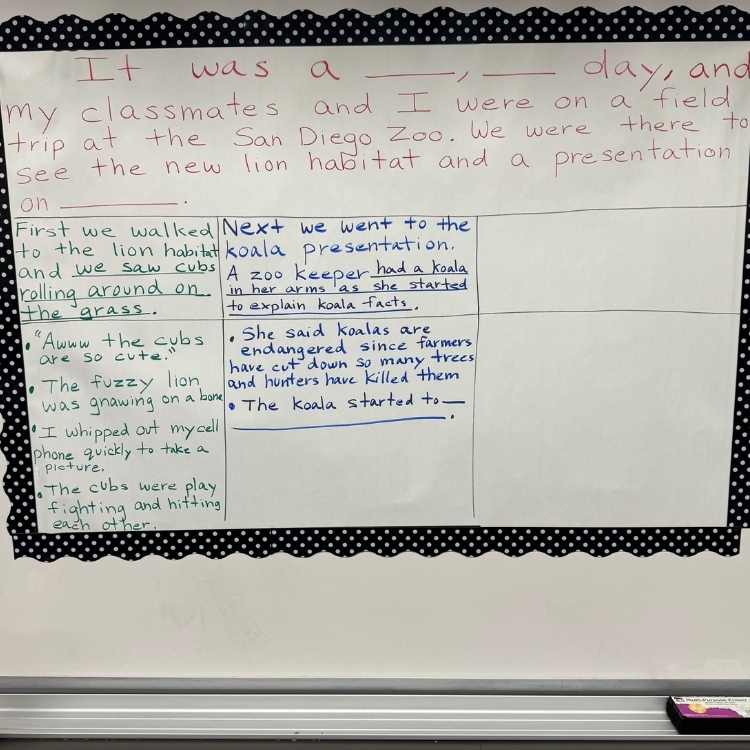 It was a ____, ____ day, and
my classmates and I were on a field
trip at the San Diego Zoo. We were there to
see the new lion habitat and a presentation
on ________.
First we walked
to the lion habitat
and we saw cubs
rolling around on
the grass.
• "Awww the cubs
are so cute."
• The fuzzy lion
was gnawing on a bone
• I whipped out my cell
phone quickly to take a
picture.
• The cubs were play
fighting and hitting
each other.
Next we went to the
koala presentation.
A zoo keeper had a koala
in her arms as she started
to explain koala facts.
• She said koalas are
endangered since farmers
have cut down so many trees
and hunters have killed them
• The koala started to __
____________________.